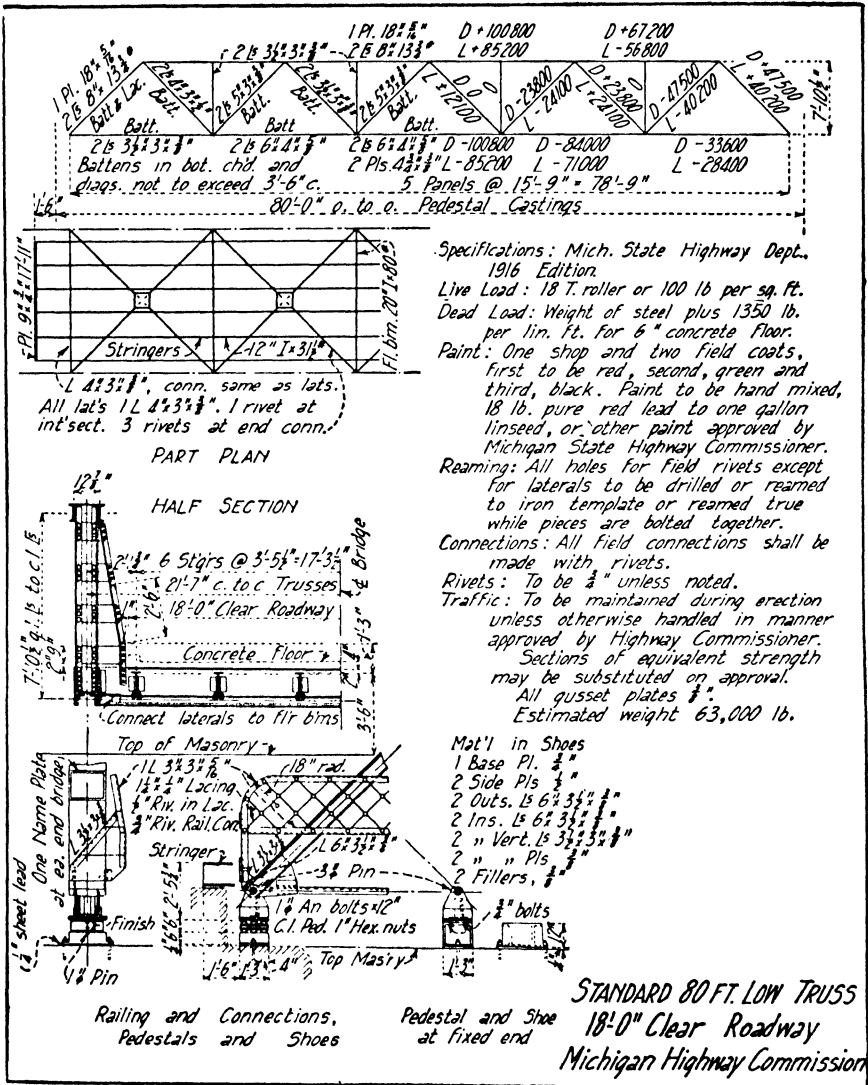 1 Pl. 18"x 5/16"
2 Ls 8" 13 3/4#
Batt & Lac.
2 Ls 3 1/2"x3"x 3/8"
1 Pl. 18"x 5/16
2 Ls 8" 13 3/4"
D +100800
L +85200
D +67200
L -56800
Batt.
Batt.
Batt.
Batt.
D 0
L +12100
D -23800
L -24100
D +23800
L +24100
D -47500
L -40200
D +47500
L +40200
7'-10 1/2"
Batt.
Batt
Batt.
2 Ls 3 1/2"x3"x 3/8"
2 Ls 6"x4"x 5/8"
2 Ls 6"x4"
D -100800
L -85200
D -84000
L -71000
D -33600
L -28400
Battens in bot. chd. and
diags. not to exceed 3'-6" c.
5 Panels @ 15'-9" = 78'-9"
1'-6"
80'-0" o. to o. Pedestal Castings
Stringers
12" I x 31 1/2#
Fl. bm. 20" I x 80#
L 4"x3"x 3/8", conn. same as lats.
All lat's 1 L 4"x3"x 3/8". 1 rivet at
int'sect. 3 rivets at end conn.
PART PLAN
Specifications: Mich. State Highway Dept.,
1916 Edition
Live Load: 18 T. roller or 100 lb per sq. ft.
Dead Load: Weight of steel plus 1350 lb.
per lin. ft. for 6" concrete floor.
Paint: One shop and two field coats,
first to be red, second, green and
third, black. Paint to be hand mixed,
18 lb. pure red lead to one gallon
linseed, or other paint approved by
Michigan State Highway Commissioner.
Reaming: All holes for field rivets except
for laterals to be drilled or reamed
to iron template or reamed true
while pieces are bolted together.
Connections: All field connections shall be
made with rivets.
Rivets: To be 3/4" unless noted.
Traffic: To be maintained during erection
unless otherwise handled in manner
approved by Highway Commissioner.
Sections of equivalent strength
may be substituted on approval.
All gusset plates 3/8".
Estimated weight 63,000 lb.
HALF SECTION
6 Stgrs @ 3'-5 1/2" = 17'-3 1/2"
21'-7" c. to c Trusses
18'-0" Clear Roadway
2'-6"
1"
℄ Bridge
1'-3"
3'-6"
Concrete Floor
Connect laterals to fl'r b'ms
Top of Masonry
One Name Plate
at ea. end bridge
1 L 3"x3"x 5/16"
Lacing
Riv. in Lac.
Riv. Rail. Con.
18" rad.
Stringer
3"φ Pin
1"φ An bolts x12"
C.I. Ped. 1" Hex. nuts
Finish
1/4" sheet lead
1"φ Pin
1'-6"
1'-3"
Top Mas'ry
3/4" bolts
1'-3"
Mat'l in Shoes
1 Base Pl. 3/4"
2 Side Pls 1/2"
2 Outs. Ls 6"x3 1/2"
2 Ins. Ls 6"x3 1/2"
2 " Vert. Ls 3 1/2"x3"x 3/8"
2 " " Pls 3/8"
2 Fillers,
Railing and Connections,
Pedestals and Shoes
Pedestal and Shoe
at fixed end
STANDARD 80 FT. LOW TRUSS
18'-0" Clear Roadway
Michigan Highway Commission